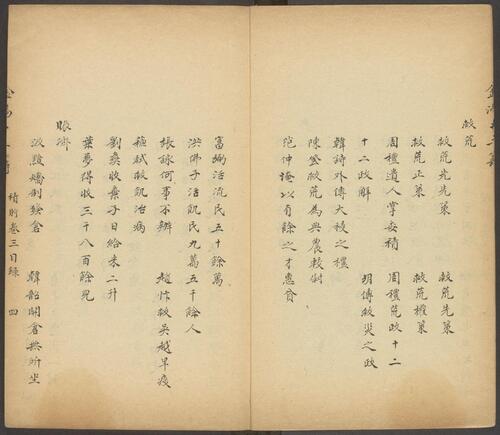 救荒
救荒先先策 救荒先策
救荒正策 救荒權策
周禮遺人掌委積 周禮荒政十二
十二政解 胡傳救災之政
韓詩外傳大祲之禮
陳登救荒為典農校尉
范仲淹以有餘之才惠貧
富弼活流民五十餘萬
洪佛子活飢民九萬五千餘人
張詠何事不辦 趙忭救吳越旱疫
蘇軾救飢治病
劉彝收棄子日給米二升
葉夢得收三千八百餘兒
賑濟
汲黯矯制發倉 韓韶開倉無所坐
積貯卷三目錄 四